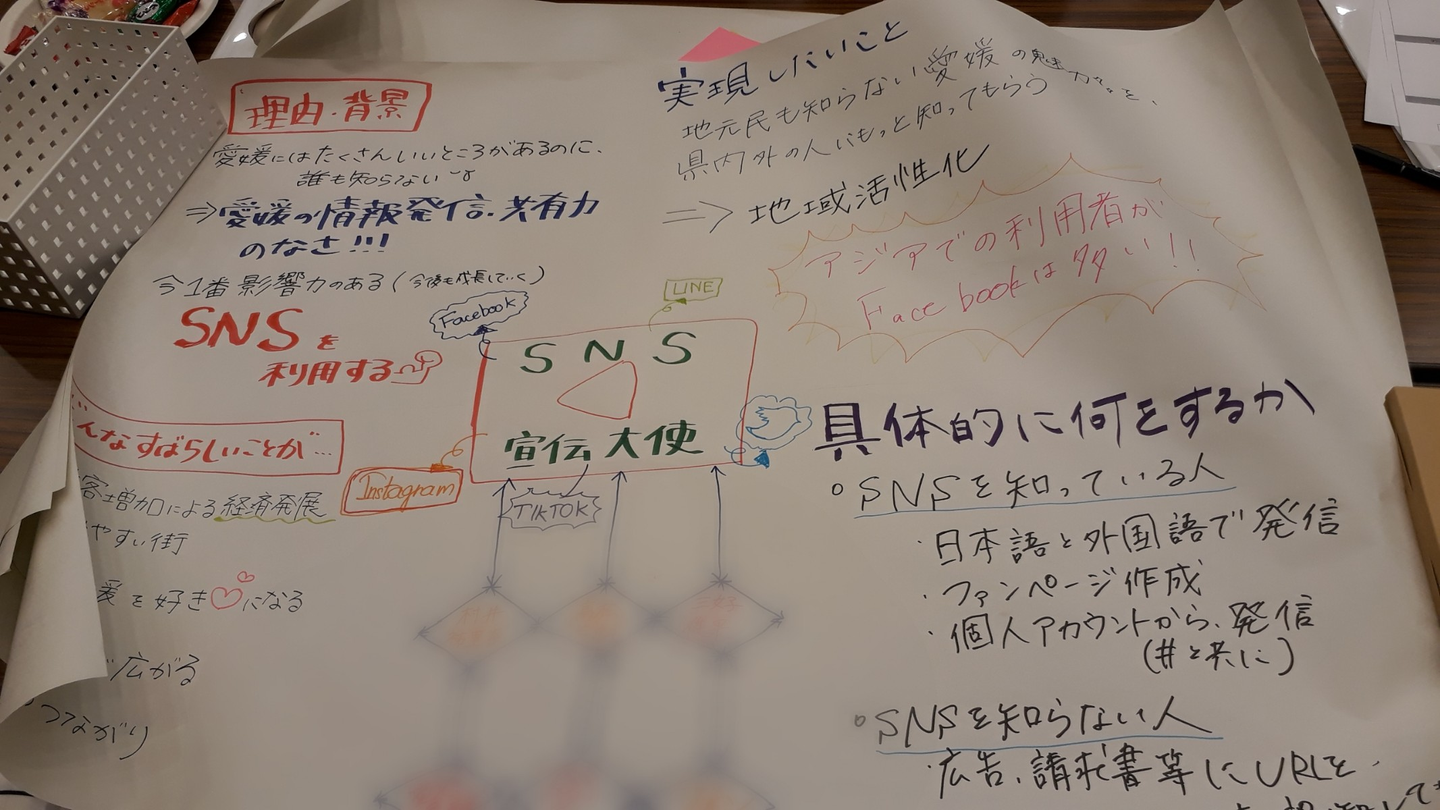 理由・背景
愛媛にはたくさんいいところがあるのに、
誰も知らない
⇒愛媛の情報発信・共有力
のなさ!!!
今1番影響力のある(今後も成長していく)
SNSを
利用する
んなすばらしいことが…
客増加による経済発展
やすい街
媛を好き♡になる
広がる
つながり
実現したいこと
地元民も知らない愛媛の魅力を、
県内外の人にもっと知ってもらう
⇒地域活性化
アジアでの利用者が
Facebookは多い!!
Facebook
LINE
SNS
宣伝大使
Instagram
TIKTOK
具体的に何をするか
○SNSを知っている人
・日本語と外国語で発信
・ファンページ作成
・個人アカウントから、発信
(#と共に)
○SNSを知らない人
・広告、請求書等にURLを